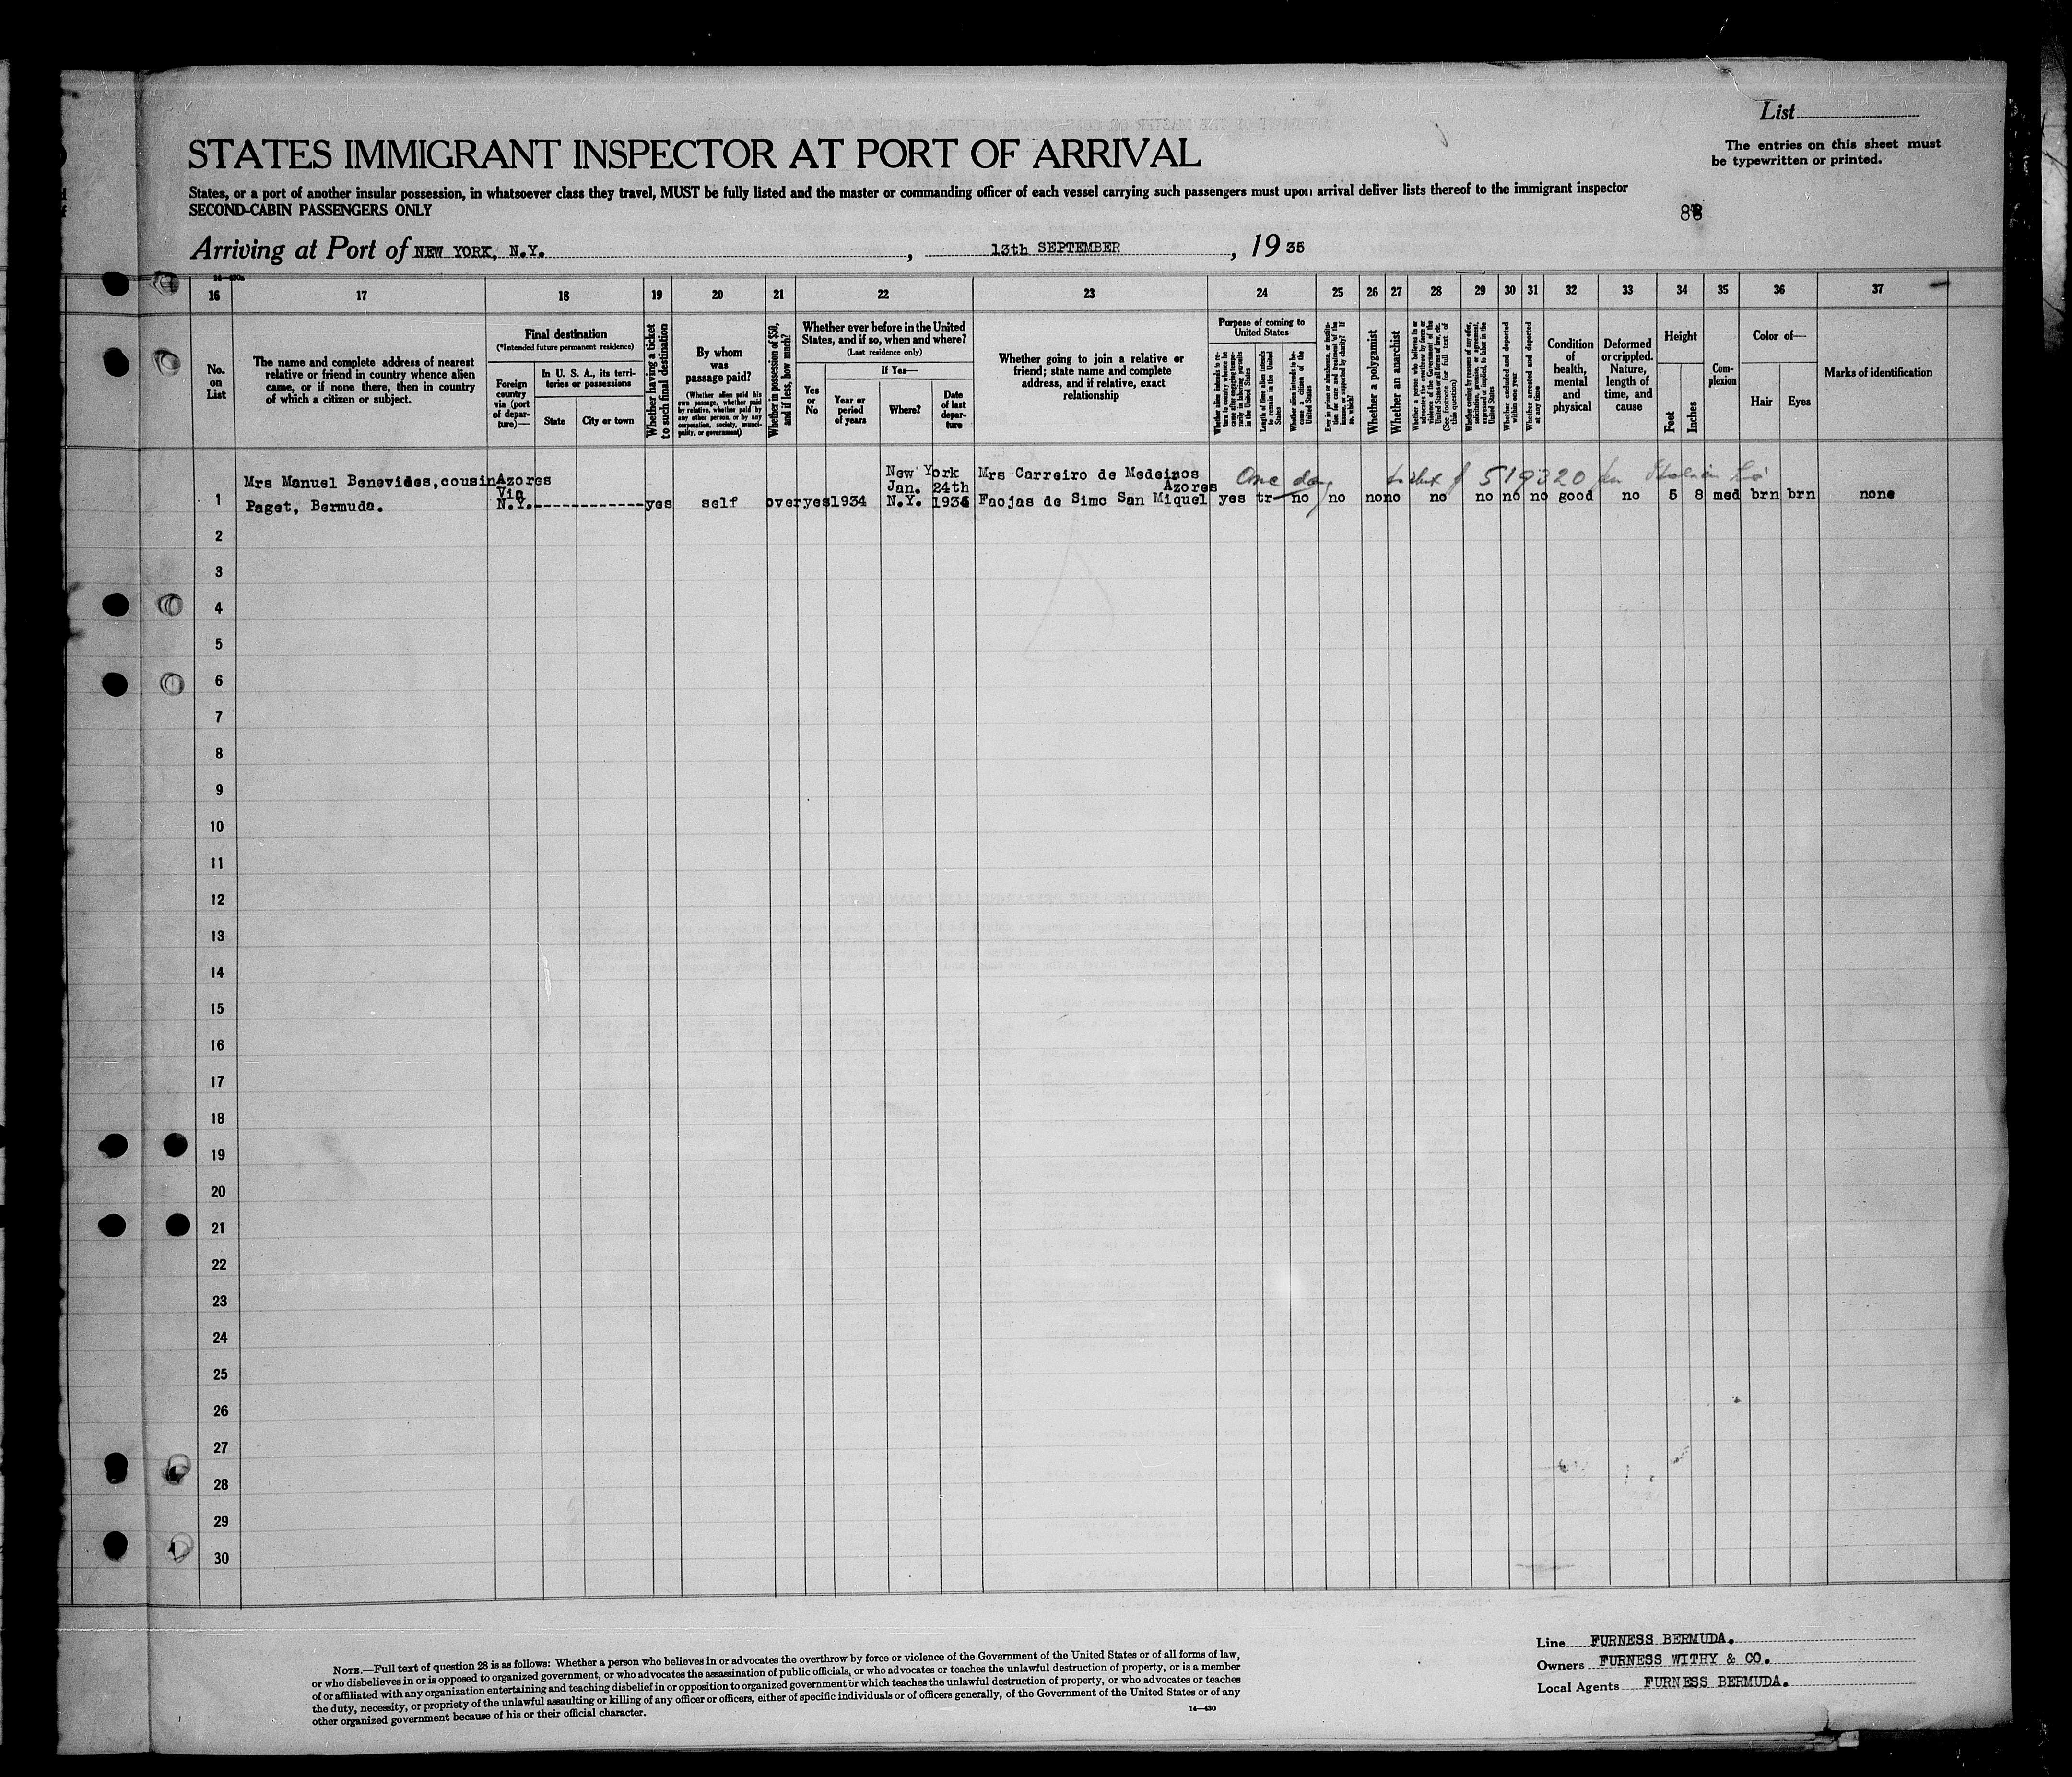 List
The entries on this sheet must
be typewritten or printed.
STATES IMMIGRANT INSPECTOR AT PORT OF ARRIVAL
States, or a port of another insular possession, in whatsoever class they travel, MUST be fully listed and the master or commanding officer of each vessel carrying such passengers must upon arrival deliver lists thereof to the immigrant inspector
SECOND-CABIN PASSENGERS ONLY
Arriving at Port of NEW YORK, N.Y. , 13th SEPTEMBER , 19 35
16 17 18 19 20 21 22 23 24 25 26 27 28 29 30 31 32 33 34 35 36 37
No. on List
The name and complete address of nearest
relative or friend in country whence alien
came, or if none there, then in country
of which a citizen or subject.
Final destination
(*Intended future permanent residence)
Foreign
country
via (port
of depar-
ture)—
In U. S. A., its terri-
tories or possessions
State
City or town
Whether having a ticket
to such final destination
By whom
was
passage paid?
(Whether alien paid his
own passage, whether paid
by relative, whether paid by
any other person, or by any
corporation, society, munici-
pality, or government)
Whether in possession of $50,
and if less, how much?
Whether ever before in the United
States, and if so, when and where?
(Last residence only)
Yes
or
No
If Yes—
Year or
period
of years
Where?
Date
of last
depar-
ture
Whether going to join a relative or
friend; state name and complete
address, and if relative, exact
relationship
Purpose of coming to
United States
Length of time alien intends
to remain in the United
States
Whether alien intends to be-
come a citizen of the
United States
Whether a polygamist
Whether an anarchist
(See footnote for full text of
this question)
Whether excluded and deported
within one year
Whether arrested and deported
at any time
Condition
of
health,
mental
and
physical
Deformed
or crippled.
Nature,
length of
time, and
cause
Height
Feet
Inches
Com-
plexion
Color of—
Hair
Eyes
Marks of identification
Mrs Manuel Benevides, cousin Azores New York Mrs Carreiro de Medeiros One day
Via Jan. 24th Azores
1 Paget, Bermuda. N.Y. yes self over yes 1934 N.Y. Faojas de Simo San Miquel yes tr no no no no no no no no good no 5 8 med brn brn none
2
3
4
5
6
7
8
9
10
11
12
13
14
15
16
17
18
19
20
21
22
23
24
25
26
27
28
29
30
NOTE.—Full text of question 28 is as follows: Whether a person who believes in or advocates the overthrow by force or violence of the Government of the United States or of all forms of law,
or who disbelieves in or is opposed to organized government, or who advocates the assassination of public officials, or who advocates or teaches the unlawful destruction of property, or is a member
of or affiliated with any organization entertaining and teaching disbelief in or opposition to organized government or which teaches the unlawful destruction of property, or who advocates or teaches
the duty, necessity, or propriety of the unlawful assaulting or killing of any officer or officers, either of specific individuals or of officers generally, of the Government of the United States or of any
other organized government because of his or their official character.
14—430
Line FURNESS BERMUDA.
Owners FURNESS WITHY & CO.
Local Agents FURNESS BERMUDA.